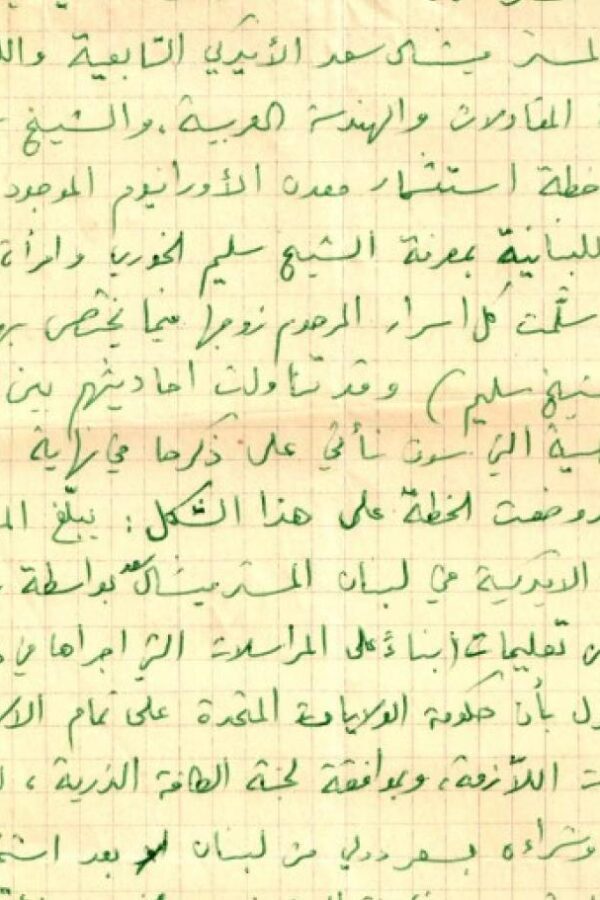 المستر ميشال سعد الأميركي التابعية
المقاولات والهندسة العربية. والشيخ
خطة استثمار معدن الأورانيوم الموجود
اللبنانية بمعرفة الشيخ سليم الخوري وامرأة
سلّمت كل اسرار المرحوم زوجها فيما يختص
سليم) وقد تناولت احاديثهم بين
التي سوف نأتي على ذكرها في نهاية
وضعت الخطة على هذا الشكل: يبلّغ
الاميركية في لبنان المستر ميشال سعد بواسطة
تعليمات (بناءً على المراسلات التي اجراها في
بأن حكومة الولايات المتحدة على تمام
اللازمة، وبموافقة لجنة الطاقة الذرية،
وشراءه بسعر دولي من لبنان بعد